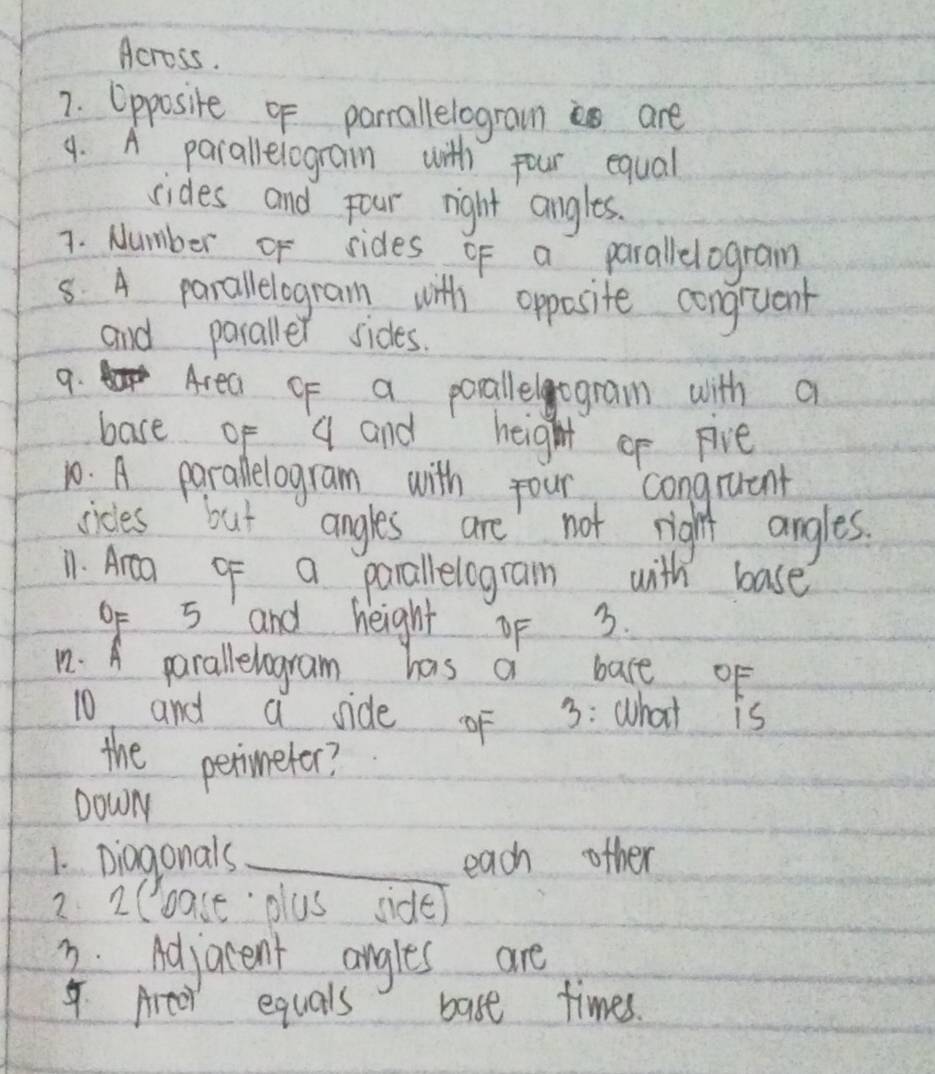 Across.
2. Opposite of parrallelogram is are
4. A parallelogram with four equal
sides and four right angles.
7. Number of sides of a parallelogram
8. A parallelogram with opposite congruent
and parallel sides.
9. Area of a parallelogram with a
base of 4 and height of five
10. A parallelogram with four congruent
sides but angles are not right angles.
11. Area of a parallelogram with base
of 5 and height of 3.
12. A parallelogram has a base of
10 and a side of 3: What is
the perimeter?
DOWN
1. Diagonals ________ each other
2. 2(base plus side)
3. Adjacent angles are
5. Area equals base times.